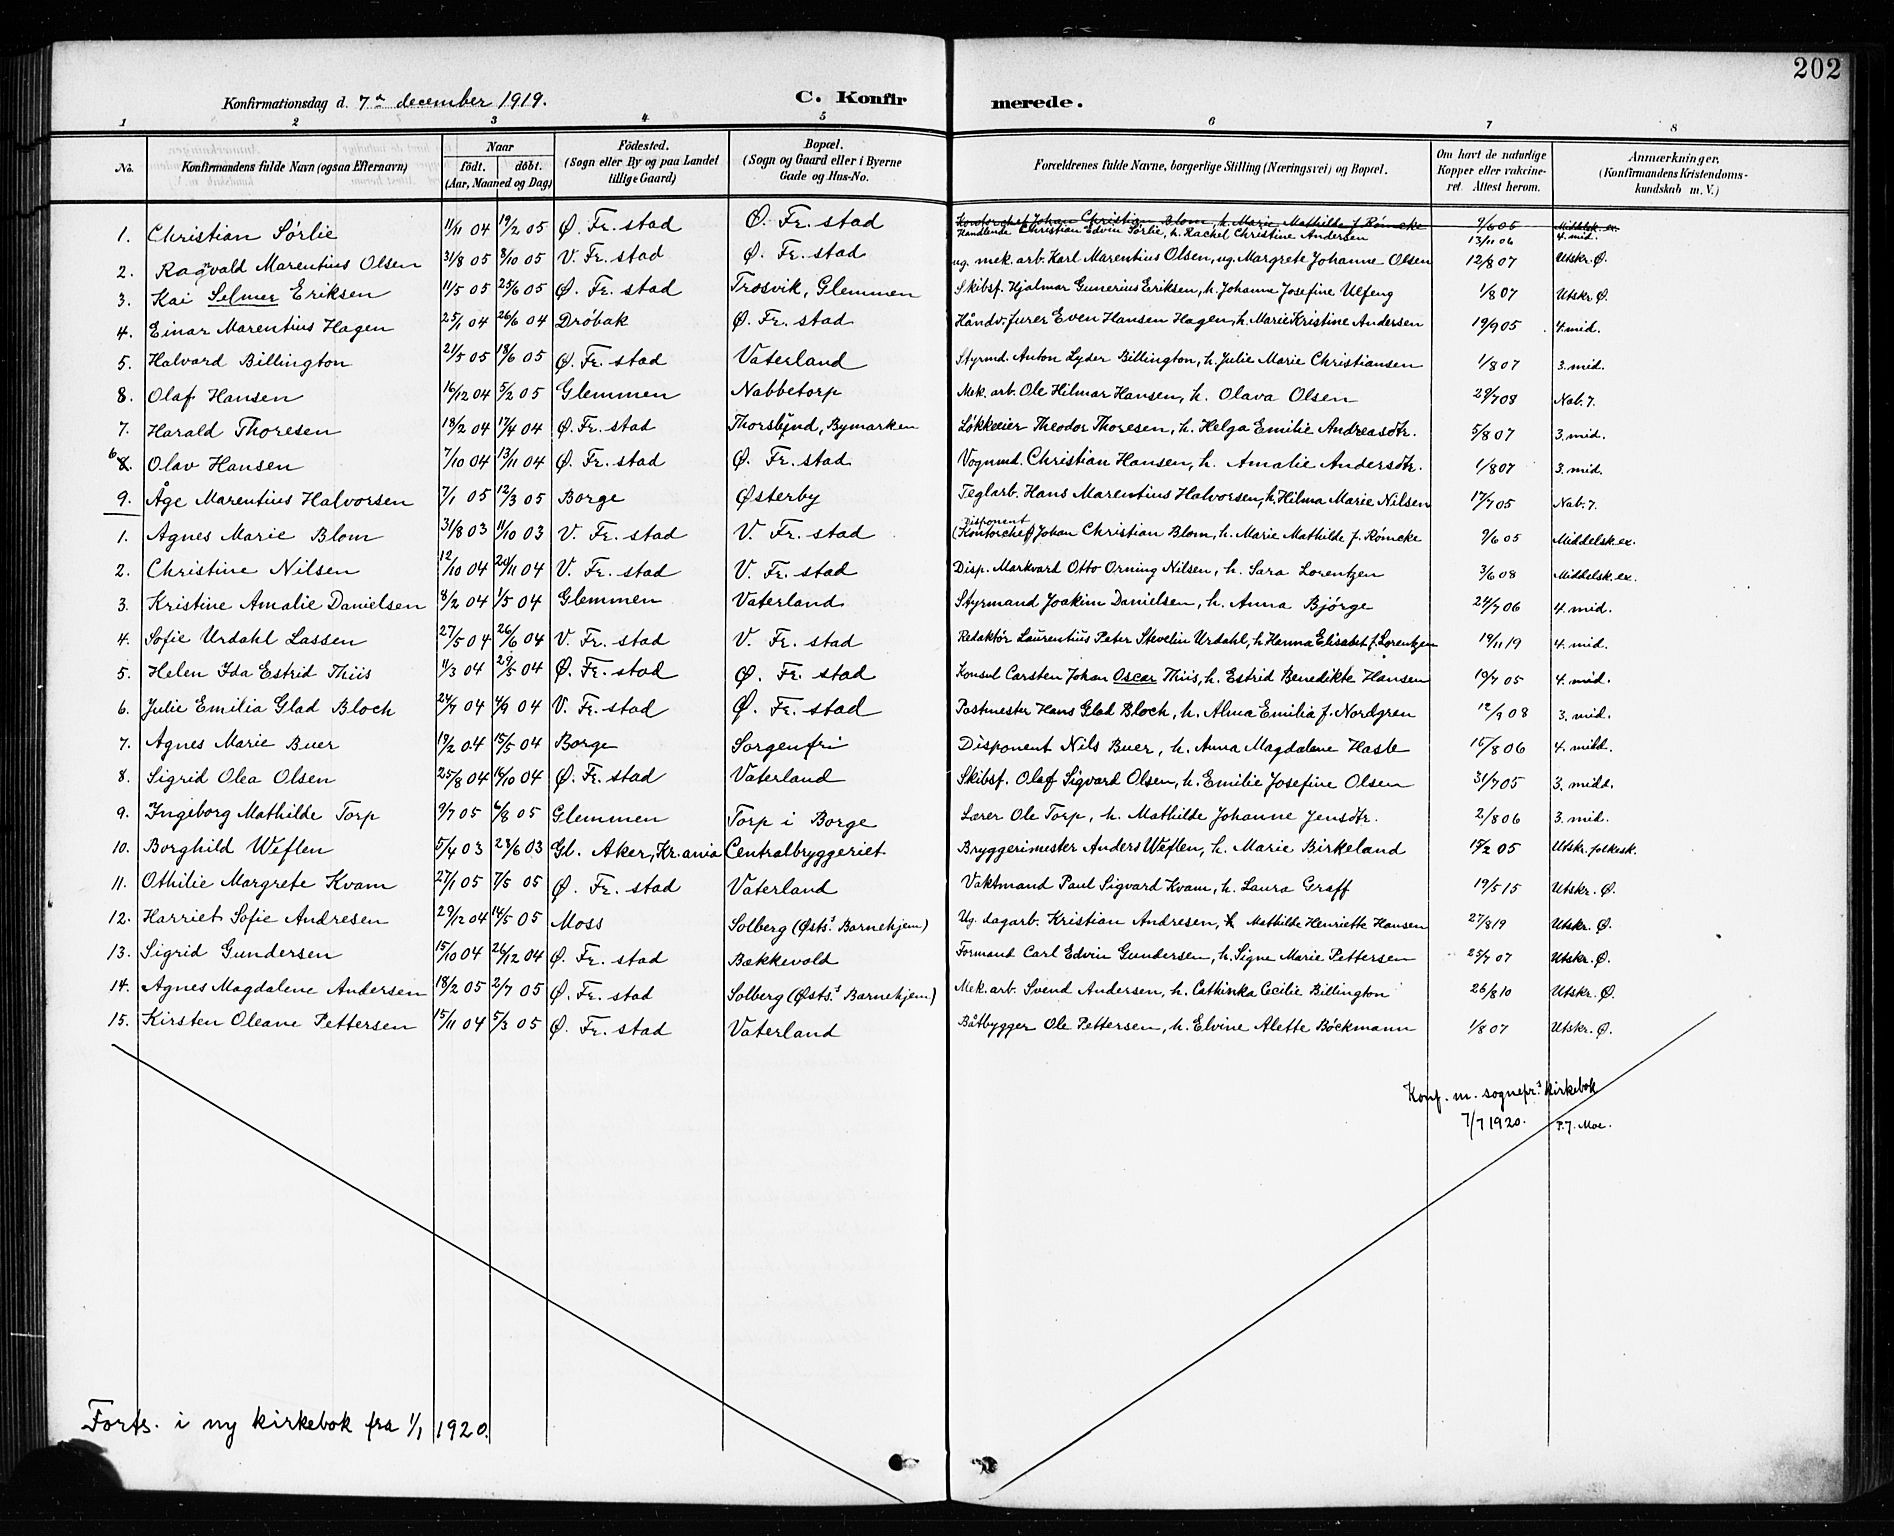 202
Konfirmationsdag d. 7de december 1919. C. Konfir merede.
1 2 3 4 5 6 7 8
No. Konfirmandens fulde Navn (ogsaa Efternavn) Naar født. døbt. (Aar, Maaned og Dag) Fødested. (Sogn eller By og paa Landet tillige Gaard) Bopæl. (Sogn og Gaard eller i Byerne Gade og Hus-No. Forældrenes fulde Navne, borgerlige Stilling (Næringsvei) og Bopæl. Om havt de naturlige Kopper eller vakcineret. Attest herom. Anmærkninger. (Konfirmandens Kristendomskundskab m. V.)
Kontorchef Johan Christian Blom, h. Marie Mathilde f. Rømcke 9/6 05 Middelsk. ex.
1. Christian Sørlie 11/11 04 19/2 05 Ø. Fr. stad Ø. Fr. stad Handlende Christian Edvin Sørlie, h. Rachel Christine Andersen 13/11 06 4. mid.
2. Ragnvald Marentius Olsen 31/8 05 8/10 05 V. Fr. stad Ø. Fr. stad ug. mek. arb. Karl Marentius Olsen, ug. Margrete Johanne Olsen 12/8 07 Utskr. Ø.
3. Kai Selmer Eriksen 11/5 05 25/6 05 Ø. Fr. stad Trosvik, Glemmen Skibsf. Hjalmar Gunerius Eriksen, h. Johanne Josefine Ulfeng 1/8 07 Utskr. Ø.
4. Einar Marentius Hagen 25/1 04 26/6 04 Drøbak Ø. Fr. stad Håndv. furer Even Hansen Hagen, h. Marie Kristine Andersen 19/9 05 4. mid.
5. Halvard Billington 21/5 05 18/6 05 Ø. Fr. stad Vaterland Styrmd. Anton Lyder Billington, h. Julie Marie Christiansen 1/8 07 3. mid.
8. Olaf Hansen 16/12 04 5/2 05 Glemmen Nabbetorp Mek. arb. Ole Hilmar Hansen, h. Olava Olsen 29/7 08 Nab. 7.
7. Harald Thoresen 18/2 04 17/4 04 Ø. Fr. stad Thorslund, Bymarken Løkkeeier Theodor Thoresen, h. Helga Emilie Andreasdtr. 5/8 07 3. mid.
6 8. Olav Hansen 7/10 04 13/11 04 Ø. Fr. stad Ø. Fr. stad Vognmd. Christian Hansen, h. Amalie Andersdtr. 1/8 07 3. mid.
9. Åge Marentius Halvorsen 7/1 05 12/3 05 Borge Østerby Teglarb. Hans Marentius Halvorsen, h. Hilma Marie Nilsen 17/7 05 Nab. 7.
1. Agnes Marie Blom 31/8 03 11/10 03 V. Fr. stad V. Fr. stad Disponent (Kontorchef) Johan Christian Blom, h. Marie Mathilde f. Rømcke 9/6 05 Middelsk. ex.
2. Christine Nilsen 12/10 04 20/11 04 V. Fr. stad V. Fr. stad Disp. Markvard Otto Orning Nilsen, h. Sara Lorentzen 3/6 08 Middelsk. ex.
3. Kristine Amalie Danielsen 8/2 04 1/5 04 Glemmen Vaterland Styrmand Joakim Danielsen, h. Anna Bjørge 24/7 06 4. mid.
4. Sofie Urdahl Lassen 27/5 04 26/6 04 V. Fr. stad V. Fr. stad Redaktør Laurentius Peter Stevelin Urdahl, h. Hanna Elisabet f. Lorentzen 19/11 19 4. mid.
5. Helen Ida Estrid Thiis 11/3 04 29/5 04 Ø. Fr. stad Ø. Fr. stad Konsul Carsten Johan Oscar Thiis, h. Estrid Benedikte Hansen 19/7 05 4. mid.
6. Julie Emilia Glad Bloch 24/7 04 4/9 04 V. Fr. stad Ø. Fr. stad Postmester Hans Glad Bloch, h. Alma Emilia f. Nordgren 12/9 08 3. mid.
7. Agnes Marie Buer 19/2 04 15/5 04 Borge Sorgenfri Disponent Nils Buer, h. Anna Magdalene Hasle 15/8 06 4. midd.
8. Sigrid Olea Olsen 25/8 04 16/10 04 Ø. Fr. stad Vaterland Skibsf. Olaf Sigvard Olsen, h. Emilie Josefine Olsen 31/7 05 3. midd.
9. Ingeborg Mathilde Torp 9/7 05 6/8 05 Glemmen Torp i Borge Lærer Ole Torp, h. Mathilde Johanne Jensdtr. 2/8 06 3. mid.
10. Borghild Weflen 5/4 03 28/6 03 Gl. Aker, Kr.ania Centralbryggeriet Bryggerimester Anders Weflen, h. Marie Birkeland 17/2 05 Utskr. folkesk.
11. Othilie Margrete Kvam 27/1 05 7/5 05 Ø. Fr. stad Vaterland Vaktmand Paul Sigvard Kvam, h. Laura Graff 19/5 15 Utskr. Ø.
12. Harriet Sofie Andresen 29/12 04 14/5 05 Moss Solberg (Østs.s Barnehjem) Ug. dagarb. Kristian Andresen, h. Mathilde Henriette Hansen 27/8 19 Utskr. Ø.
13. Sigrid Gundersen 15/10 04 26/12 04 Ø. Fr. stad Bækkevold Formand Carl Edvin Gundersen, h. Signe Marie Pettersen 25/7 07 Utskr. Ø.
14. Agnes Magdalene Andersen 18/2 05 2/7 05 Ø. Fr. stad Solberg (Østs.s Barnehjem) Mek. arb. Svend Andersen, h. Cathinka Cecilie Billington 26/8 10 Utskr. Ø.
15. Kirsten Oleane Pettersen 15/11 04 5/3 05 Ø. Fr. stad Vaterland Båtbygger Ole Pettersen, h. Elvine Alette Böckmann 1/8 07 Utskr. Ø.
Konf. m. sognepr.s kirkebok
7/7 1920. P. J. Moe.
Forts. i ny kirkebok fra 1/1 1920.